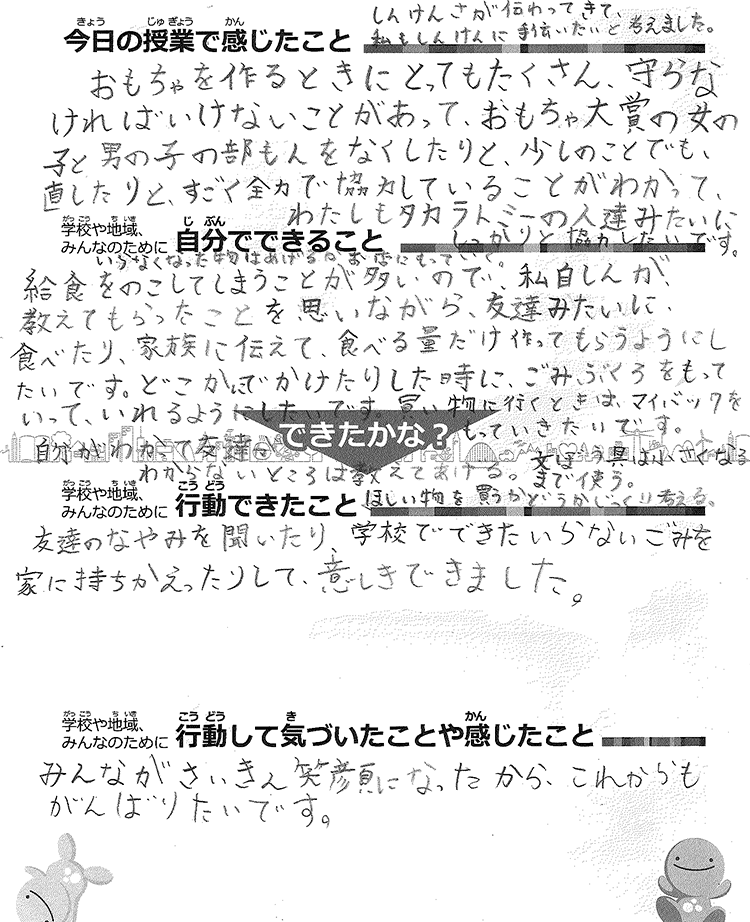 今日の授業で感じたこと
しんけんさが伝わってきて、
私もしんけんに手伝いたいと考えました。
おもちゃを作るときにとってもたくさん、守らな
ければいけないことがあって、おもちゃ大賞の女の
子と男の子の部もんをなくしたりと、少しのことでも、
直したりと、すごく全力で協力していることがわかって、
わたしもタカラトミーの人達みたいに
しっかりと協力したいです。
学校や地域、
みんなのために 自分でできること
いらなくなった物はあげるかお店にもっていく。
給食をのこしてしまうことが多いので、私自しんが、
教えてもらったことを思いながら、友達みたいに、
食べたり、家族に伝えて、食べる量だけ作ってもらうようにし
たいです。どこかにでかけたりした時に、ごみぶくろをもって
いって、いれるようにしたいです。買い物に行くときは、マイバックを
もっていきたいです。
できたかな?
自分がわかって友達が
わからないところは教えてあげる。
文ぼう具は小さくなる
まで使う。
学校や地域、
みんなのために 行動できたこと
ほしい物を買うかどうかじっくり考える。
友達のなやみを聞いたり、学校でできたいらないごみを
家に持ちかえったりして、意しきできました。
学校や地域、
みんなのために 行動して気づいたことや感じたこと
みんながさいきん笑顔になったから、これからも
がんばりたいです。